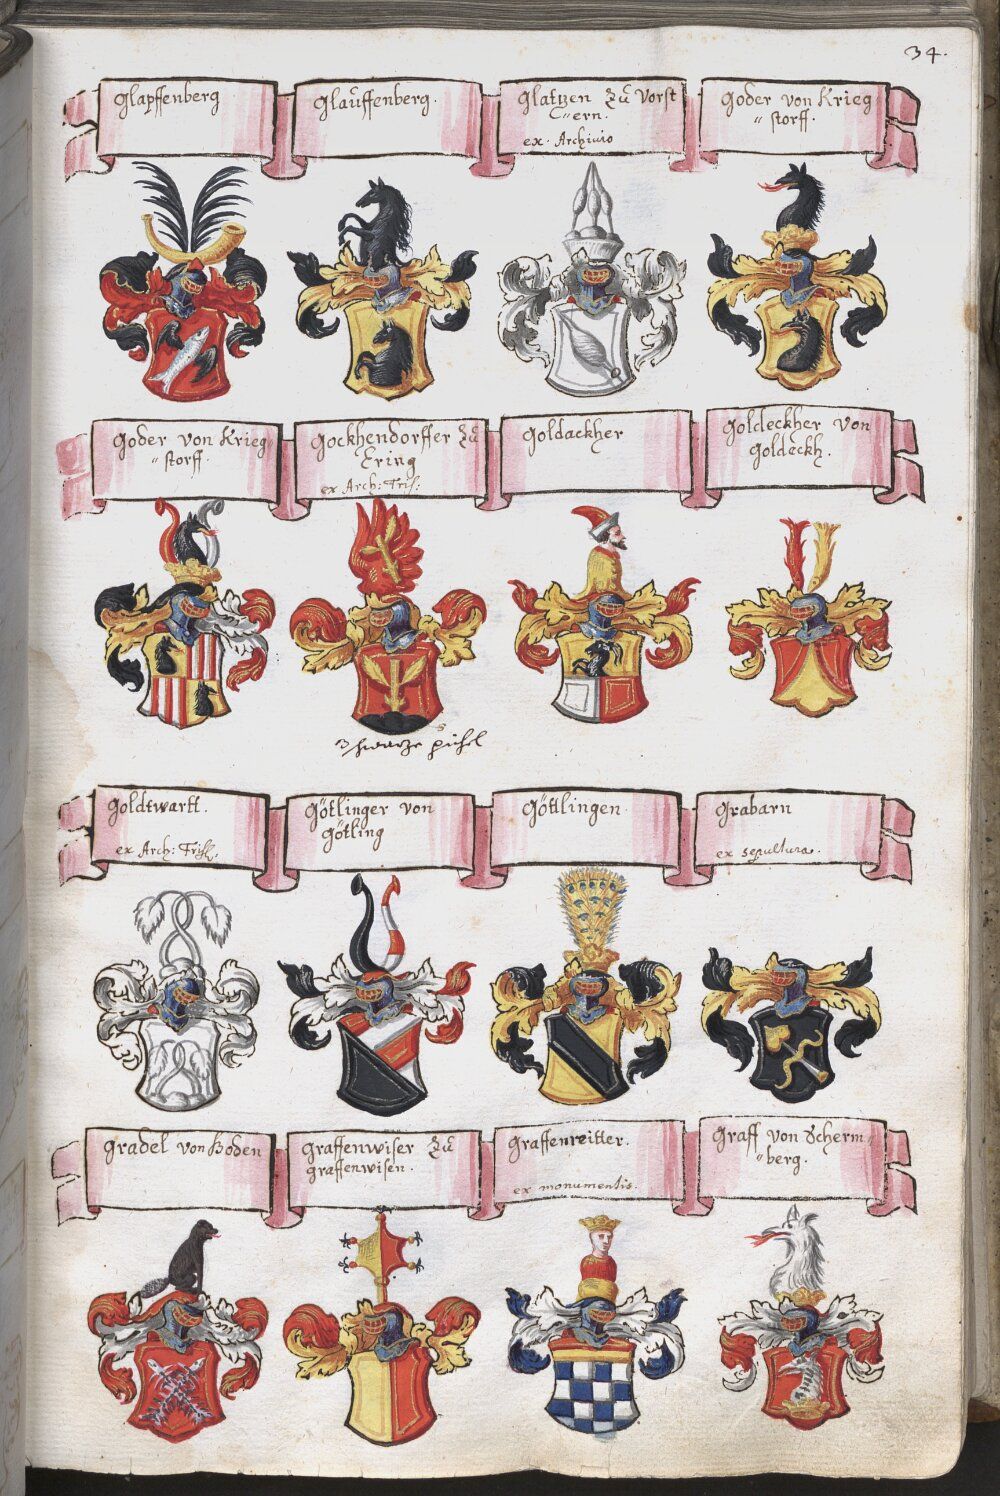 34.
Glapffenberg
Glauffenberg.
Glatzen Zu Vorst
"ern.
ex. Archiuio
Goder von Krieg
"storff.
Goder von Krieg
"storff.
Gockhendorffer Zu
Ering
ex Arch: Fris:
Goldackher
Goldeckher von
Goldeckh.
schwartze pichel
Goldtwartt.
ex Arch: Fris.
Götlinger von
Götling
Göttlingen.
Grabarn
ex sepultura.
Gradel von Boden
Graffenwiser Zu
graffenwisen.
Graffenreitter.
ex monumentis.
Graff von Scherm
"berg.